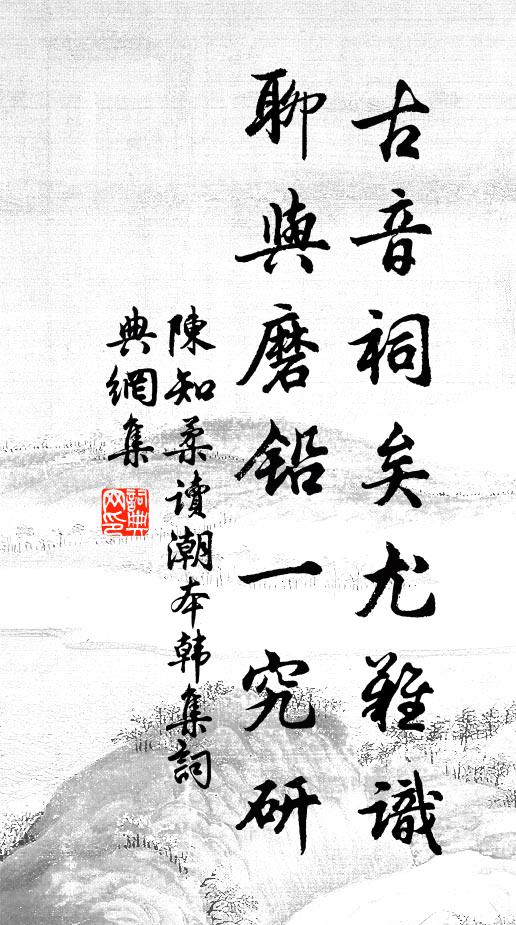 古音祠矣尤難識
聊與磨鉛一究研
陳知柔讀潮本韓集詞
典網集
詞典
网印